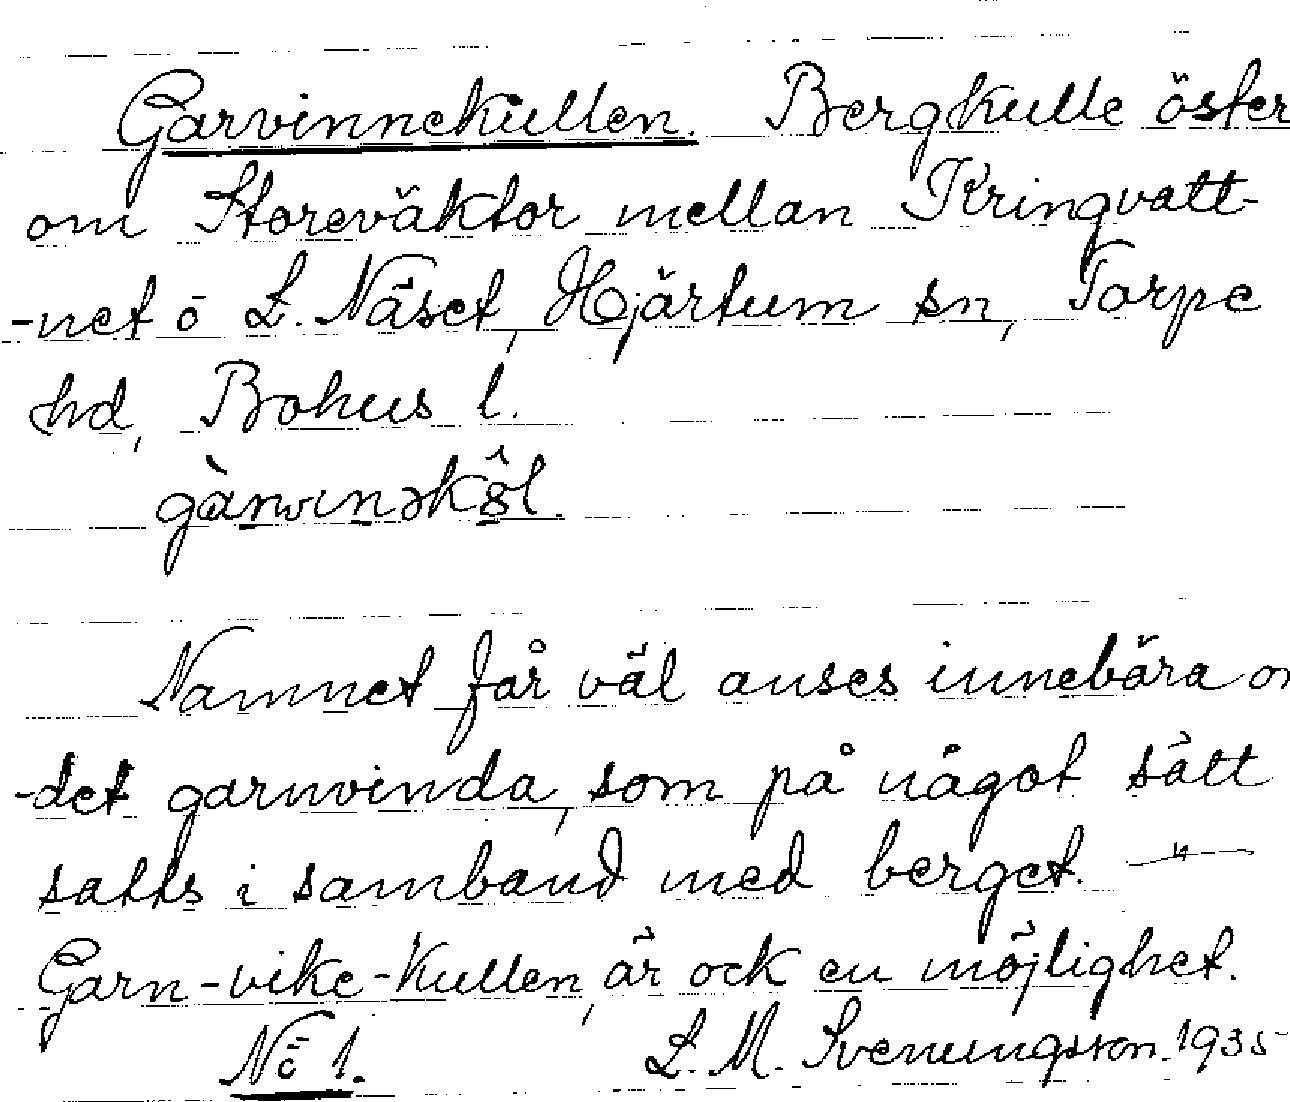 Garvinnekullen. Bergkulle öster
om Storeväktor mellan Kringvatt-
-net o L. Näset, Hjärtum sn, Torpe
hd, Bohus l.
Namnet får väl anses innebära or
-det garnvinda, som på något sätt
satts i samband med berget. — " —
Garn-vike-kullen, är ock en möjlighet.
No 1. L. M. Svenungsson. 1935